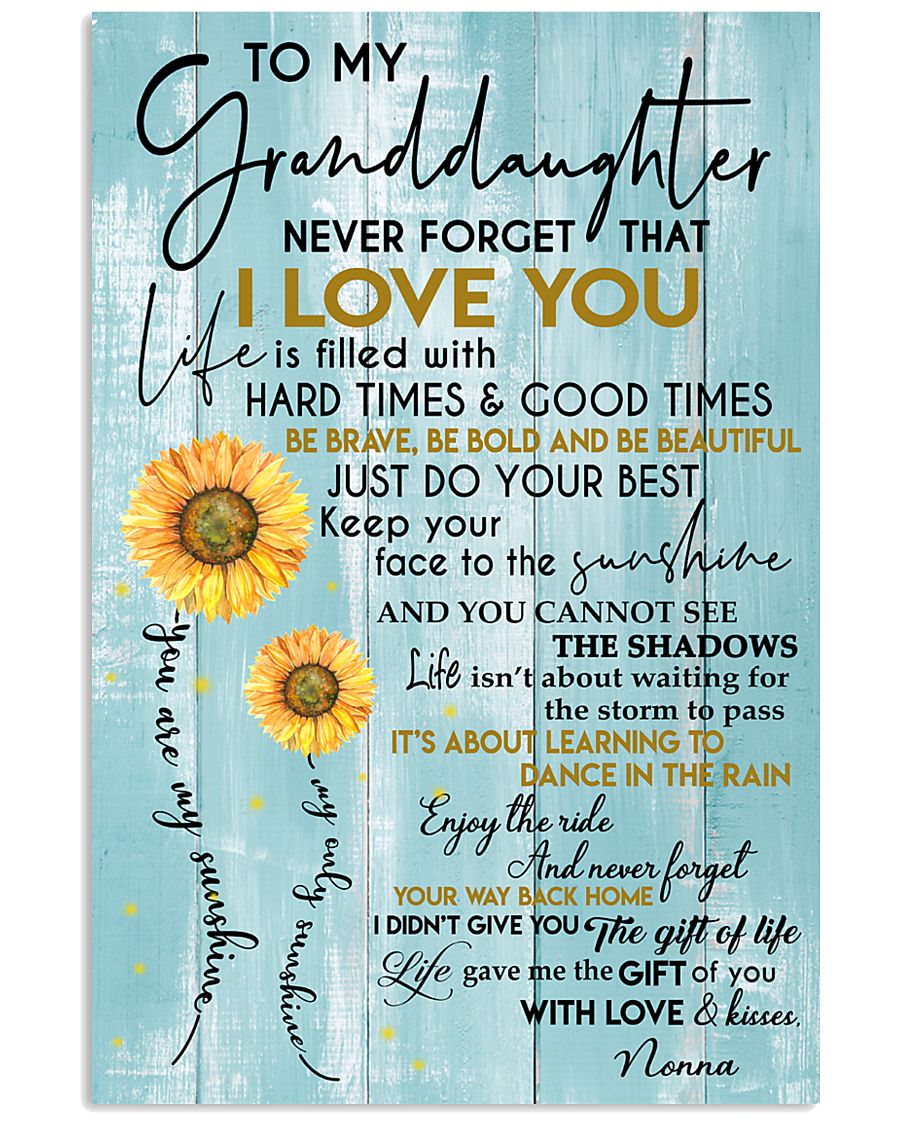 TO MY
Granddaughter
NEVER FORGET THAT
I LOVE YOU
Life is filled with
HARD TIMES & GOOD TIMES
BE BRAVE, BE BOLD AND BE BEAUTIFUL
JUST DO YOUR BEST
Keep your
face to the sunshine
AND YOU CANNOT SEE
THE SHADOWS
Life isn't about waiting for
the storm to pass
IT'S ABOUT LEARNING TO
DANCE IN THE RAIN
Enjoy the ride
And never forget
YOUR WAY BACK HOME
I DIDN'T GIVE YOU The gift of life
Life gave me the GIFT of you
WITH LOVE & kisses,
Nonna
you are my sunshine
my only sunshine